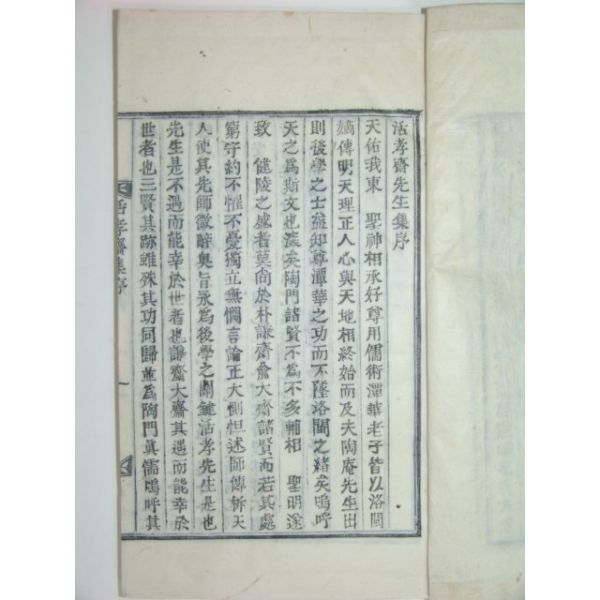 活孝齋先生集序
天佑我東 聖神相承好尊用儒術潭華老子皆以洛閩
嫡傳明天理正人心與天地相終始而及夫陶庵先生出
則後學之士益知尊潭華之功而不墜洛閩之緖矣嗚呼
天之爲斯文也深矣陶門諸賢不爲不多輔相 聖明遂
致 健陵之盛者莫尙於朴謙齋兪大齋諸賢而若其處
窮守約不懼不憂獨立無憫言論正大惻怛述師傳柝天
人使其先師微辭奧旨永爲後學之關鍵活孝先生是也
先生是不遇而能幸於世者也謙齋大齋其遇而能幸於
世者也三賢其跡雖殊其功同歸並爲陶門眞儒嗚呼其
活孝齋集序
一